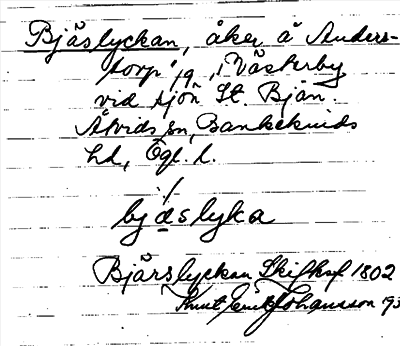 Bjäslyckan, åker å Anders-
torp's äg. i Västerby
vid sjön St. Bjän.
Åtvids sn, Bankekinds
hd, Ögl. l.
./.
bjäslyka
Bjärslyckan Skifksf 1802
Knut Emil Johansson 93